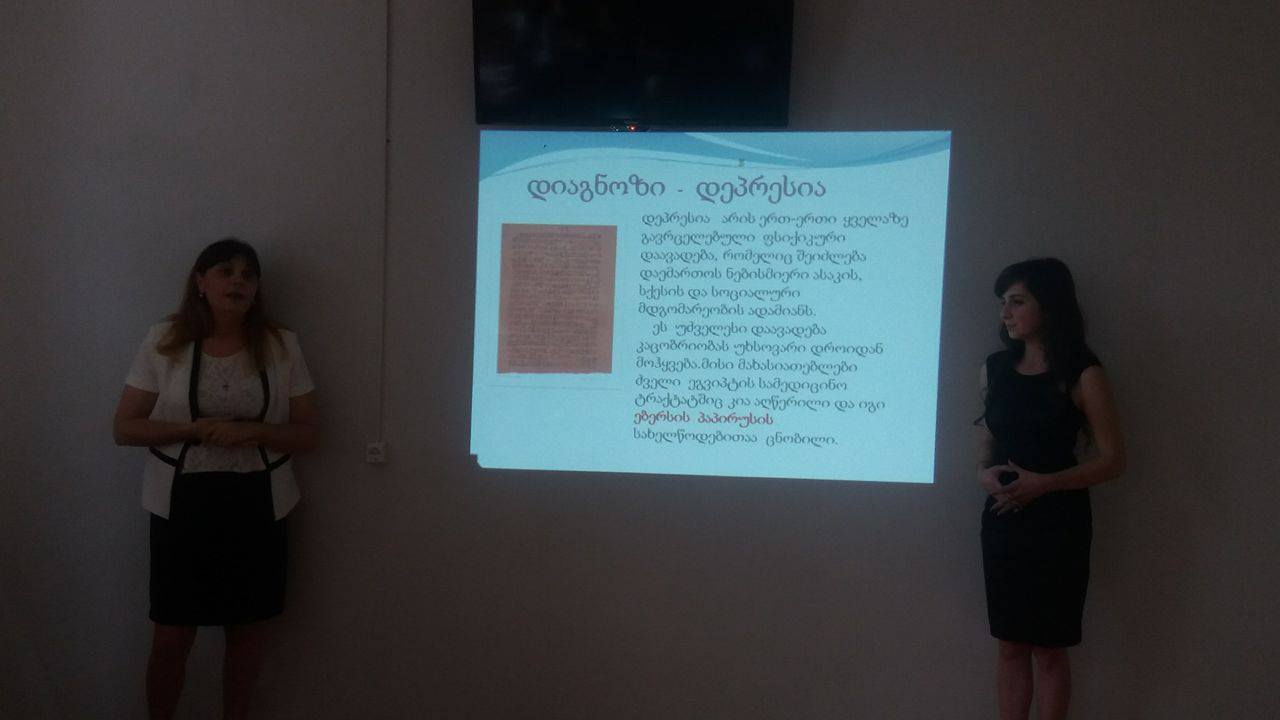 დიაგნოზი - დეპრესია
დეპრესია არის ერთ-ერთი ყველაზე
გავრცელებული ფსიქიკური
დაავადება, რომელიც შეიძლება
დაემართოს ნებისმიერი ასაკის,
სქესის და სოციალური
მდგომარეობის ადამიანს.
ეს უძველესი დაავადება
კაცობრიობას უხსოვარი დროიდან
მოჰყვება.მისი მახასიათებლები
ძველი ეგვიპტის სამედიცინო
ტრაქტატშიც კია აღწერილი და იგი
ებერსის პაპირუსის
სახელწოდებითაა ცნობილი.